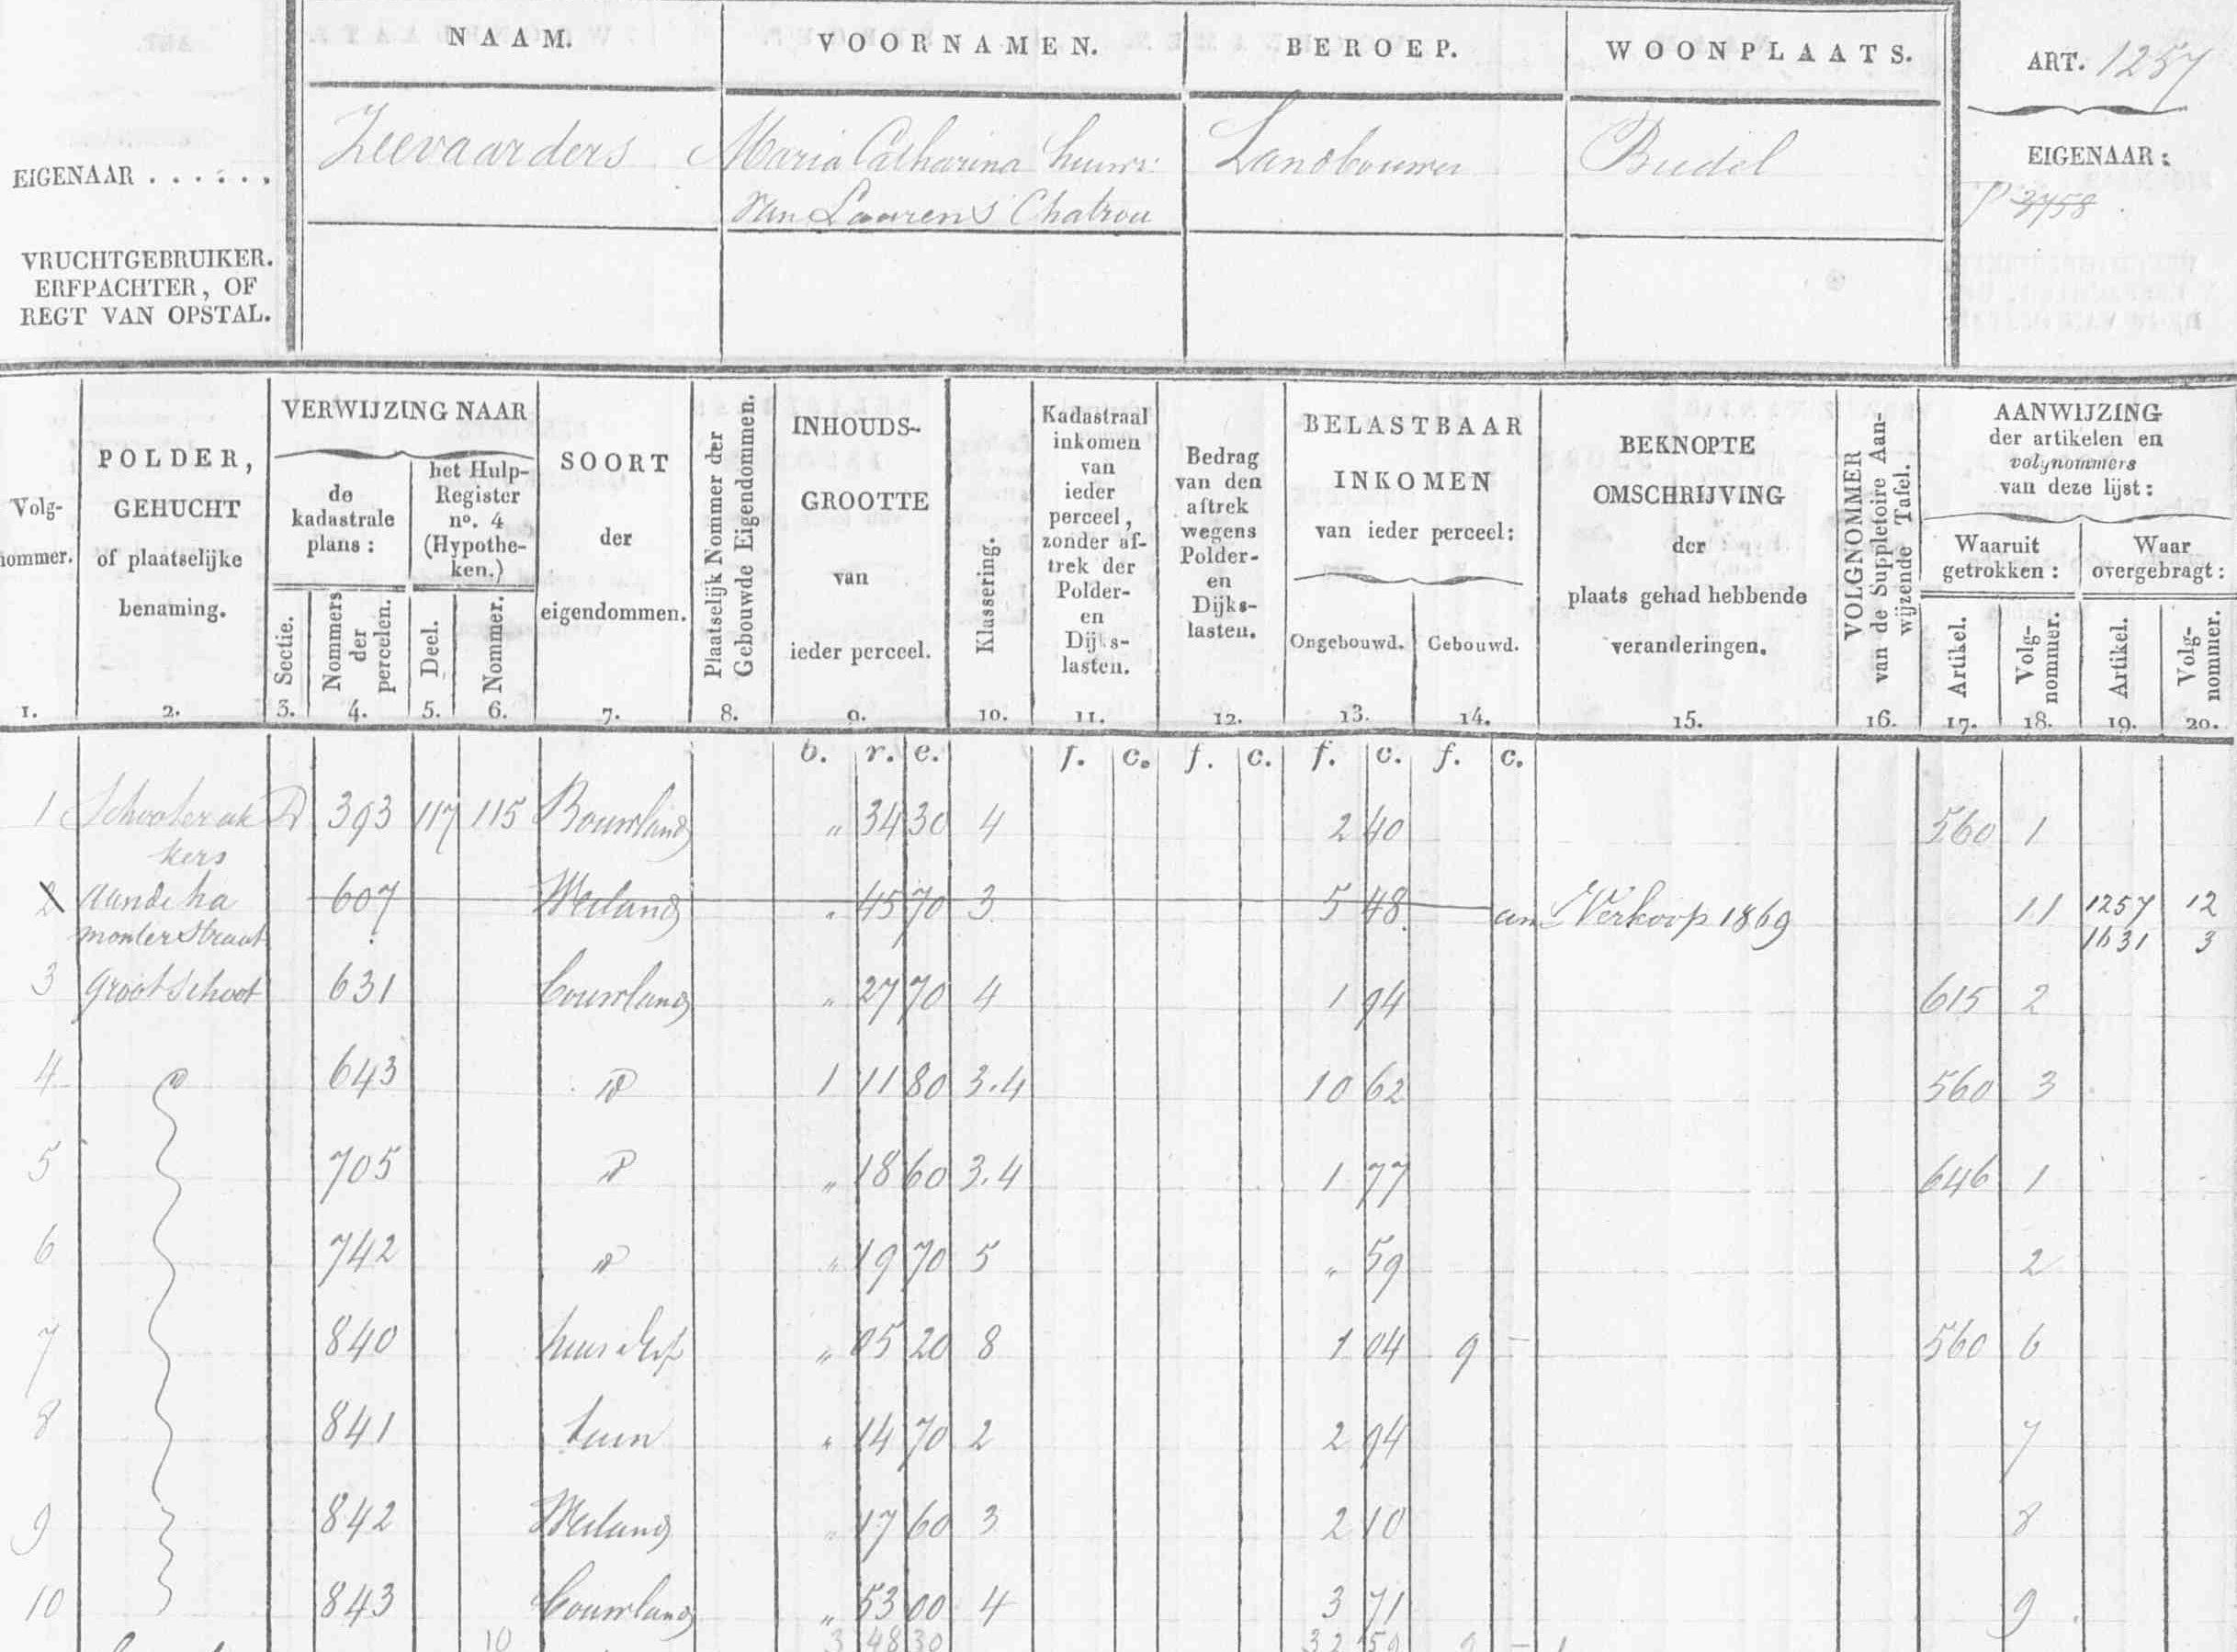 NAAM. VOORNAMEN. BEROEP. WOONPLAATS. ART. 1257
EIGENAAR ...... Zeevaarders Maria Catharina huwr: Landbouwer Budel EIGENAAR:
van Laurens Chatrou P 3758
VRUCHTGEBRUIKER.
ERFPACHTER, OF
REGT VAN OPSTAL.
Volg-
nommer.
1.
POLDER,
GEHUCHT
of plaatselijke
benaming.
2.
VERWIJZING NAAR
de
kadastrale
plans:
Sectie.
3.
Nommers
der
percelen.
4.
het Hulp-
Register
nº. 4
(Hypothe-
ken.)
Deel.
5.
Nommer.
6.
SOORT
der
eigendommen.
7.
Plaatselijk Nommer der
Gebouwde Eigendommen.
8.
INHOUDS-
GROOTTE
van
ieder perceel.
9.
Klassering.
10.
Kadastraal
inkomen
van
ieder
perceel,
zonder af-
trek der
Polder-
en
Dijks-
lasten.
11.
Bedrag
van den
aftrek
wegens
Polder-
en
Dijks-
lasten.
12.
BELASTBAAR
INKOMEN
van ieder perceel:
Ongebouwd.
13.
Gebouwd.
14.
BEKNOPTE
OMSCHRIJVING
der
plaats gehad hebbende
veranderingen.
15.
VOLGNOMMER
van de Suppletoire Aan-
wijzende Tafel.
16.
AANWIJZING
der artikelen en
volgnommers
van deze lijst:
Waaruit
getrokken:
Artikel.
17.
Volg-
nommer.
18.
Waar
overgebragt:
Artikel.
19.
Volg-
nommer.
20.
b. r. e. f. c. f. c. f. c. f. c.
1 Schooter ak D 393 117 115 Bouwland " 34 30 4 2 40 560 1
kers
2 Aan de ha 607 Weiland " 45 70 3 5 48 Verkoop 1869 11 1257 12
monter Straat 1631 3
3 Groot Schoot 631 bouwland " 27 70 4 1 94 615 2
4 643 D 1 11 80 3.4 10 62 560 3
5 705 D " 18 60 3.4 1 77 646 1
6 742 D " 19 70 5 " 59 2
7 840 huis & erf " 05 20 8 1 04 9 - 560 6
8 841 tuin " 14 70 2 2 94 7
9 842 Weiland " 17 60 3 2 10 8
10 843 bouwland " 53 00 4 3 71 9
10 3 48 30 32 59 9 -